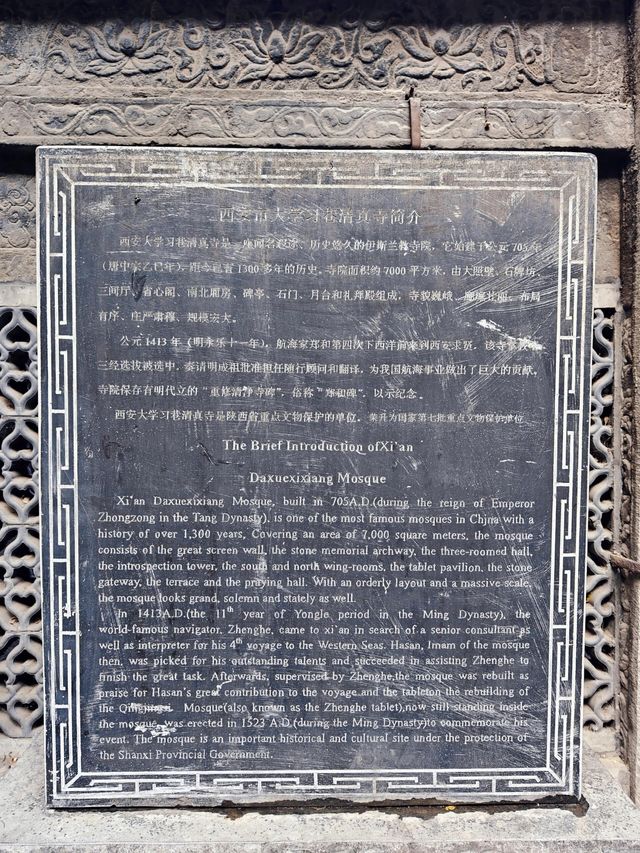 西安市大学习巷清真寺简介
西安大学习巷清真寺是一座闻名遐迩、历史悠久的伊斯兰教寺院，它始建于公元705年
（唐中宗乙巳年），距今已有1300多年的历史。寺院面积约7000平方米，由大照壁、石牌坊、
三间厅、省心阁、南北厢房、碑亭、石门、月台和礼拜殿组成，寺貌巍峨、布局
有序、庄严肃穆、规模宏大。
公元1413年（明永乐十一年），航海家郑和第四次下西洋前来到西安求贤，该寺掌教哈
三经选拔被选中，奏请明成祖批准担任随行顾问和翻译，为我国航海事业做出了巨大的贡献。
寺院保存有明代立的“重修清净寺碑”，俗称“郑和碑”，以示纪念。
西安大学习巷清真寺是陕西省重点文物保护的单位。荣升为国家第七批重点文物保护单位
The Brief Introduction ofXi'an
Daxuexixiang Mosque
Xi'an Daxuexixiang Mosque, built in 705A.D.(during the reign of Emperor
Zhongzong in the Tang Dynasty), is one of the most famous mosques in China with a
history of over 1,300 years, Covering an area of 7,000 square meters, the mosque
consists of the great screen wall, the stone memorial archway, the three-roomed hall,
the introspection tower, the south and north wing-rooms, the tablet pavilion, the stone
gateway, the terrace and the praying hall. With an orderly layout and a massive scale,
the mosque looks grand, solemn and stately as well.
In 1413A.D.(the 11th year of Yongle period in the Ming Dynasty), the
world-famous navigator, Zhenghe, came to xi'an in search of a senior consultant as
well as interpreter for his 4th voyage to the Western Seas. Hasan, Imam of the mosque
then, was picked for his outstanding talents and succeeded in assisting Zhenghe to
finish the great task. Afterwards, supervised by Zhenghe,the mosque was rebuilt as
praise for Hasan's great contribution to the voyage and the tableton the rebuilding of
the Mosque(also known as the Zhenghe tablet),now still standing inside
the mosque, was erected in 1523 A.D.(during the Ming Dynasty)to commemorate his
event. The mosque is an important historical and cultural site under the protection of
the Shanxi Provincial Government.